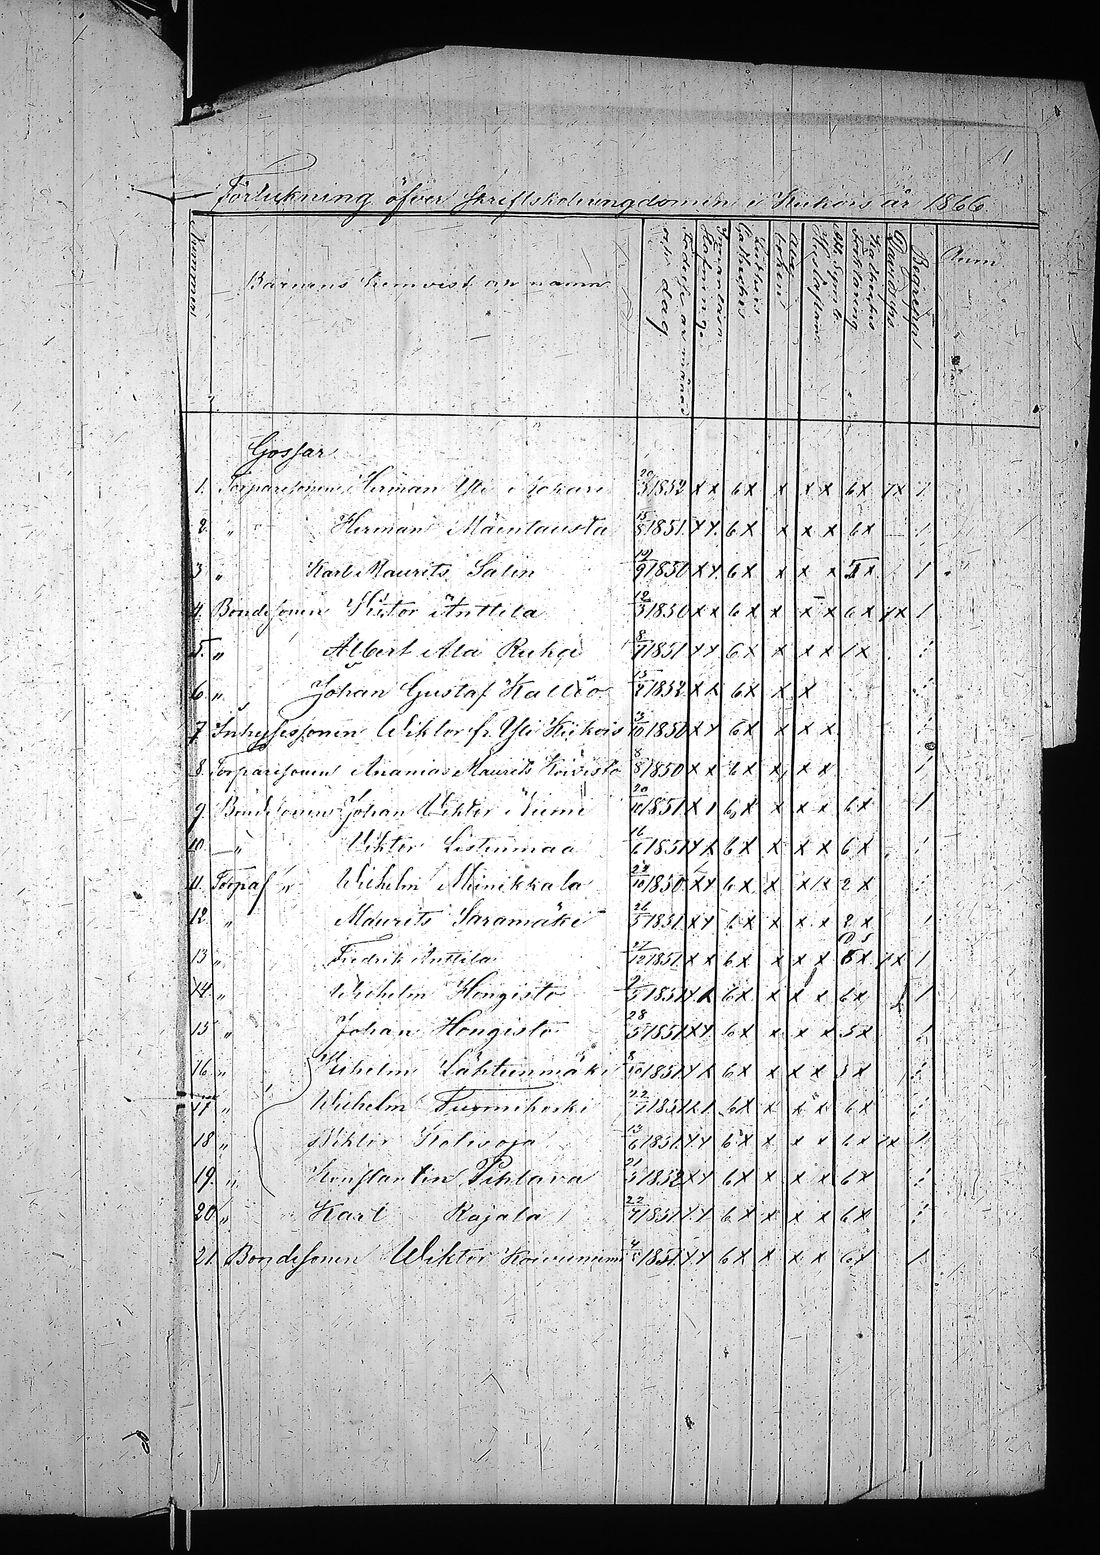 1
Förtekning öfver Skriftskoleungdomen i Kiikois år 1866
Nummer
Barnens hemvist och namn
Födelse år månad och dag
Innanläsn.
Lutheri Catheches
Hustaflan
Ath. Symb.
Förklaring
Davids Ps
Begrepp
Anm
Gossar
1. Torparesonen Herman Yli Kokari 20/3 1852 x x 6 x x x x 6 x 7 x 1
2. " Herman Mäentausta 15/8 1851 x x 6 x x x x 6 x 1
3 " Karl Maurits Salin 19/9 1850 x x 6 x x x x x 1
4. Bondesonen Viktor Anttila 12/5 1850 x x 6 x x x x 6 x 7 x 1
5. " Albert Ala Ruka 8/7 1851 x x 6 x x x x 1 x 1
6 " Johan Gustaf Kallio 15/2 1852 x x 6 x x x 1
7 Inhysessonen Wiktor fr. Yli Kiikois 3/10 1850 x x 6 x x x x 1
8. Torparesonen Ananias Maurits Koivisto 8/8 1850 x x 6 x x x x 1
9. Bondesonen Johan Viktor Niemi 20/10 1851 x 1 6 x x x x 6 x 1
10. " Viktor Listenmaa 16/6 1851 x x 6 x x x x 6 x 1
11. Torpas " Wilhelm Minikkala 24/10 1850 x x 6 x x x 1 x 2 x 1
12. " Maurits Saramäki 26/5 1851 x x 6 x x x x 2 x 1
13 " Fredrik Anttila 27/12 1851 x x 6 x x x x x 7 x 1
14. " Wilhelm Hongisto 9/5 1851 x x 6 x x x x 6 x 1
15 " Johan Hongisto 28/5 1851 x x 6 x x x x 5 x 1
16 " Wilhelm Lähteenmäki 8/10 1851 x x 6 x x x x 3 x 1
17 " Wilhelm Tuomikoski 22/7 1851 x 1 6 x x x x 6 x 1
18 " Viktor Kolisoja 13/6 1851 x x 6 x x x x 6 x 7 x 1
19. " Konstantin Pihlava 21/5 1852 x x 6 x x x x 6 x 1
20 " Karl Rajala 22/7 1851 x x 6 x x x x 6 x 1
21. Bondesonen Wiktor Koivuniemi 1851 x x 6 x x x x 6 x 1